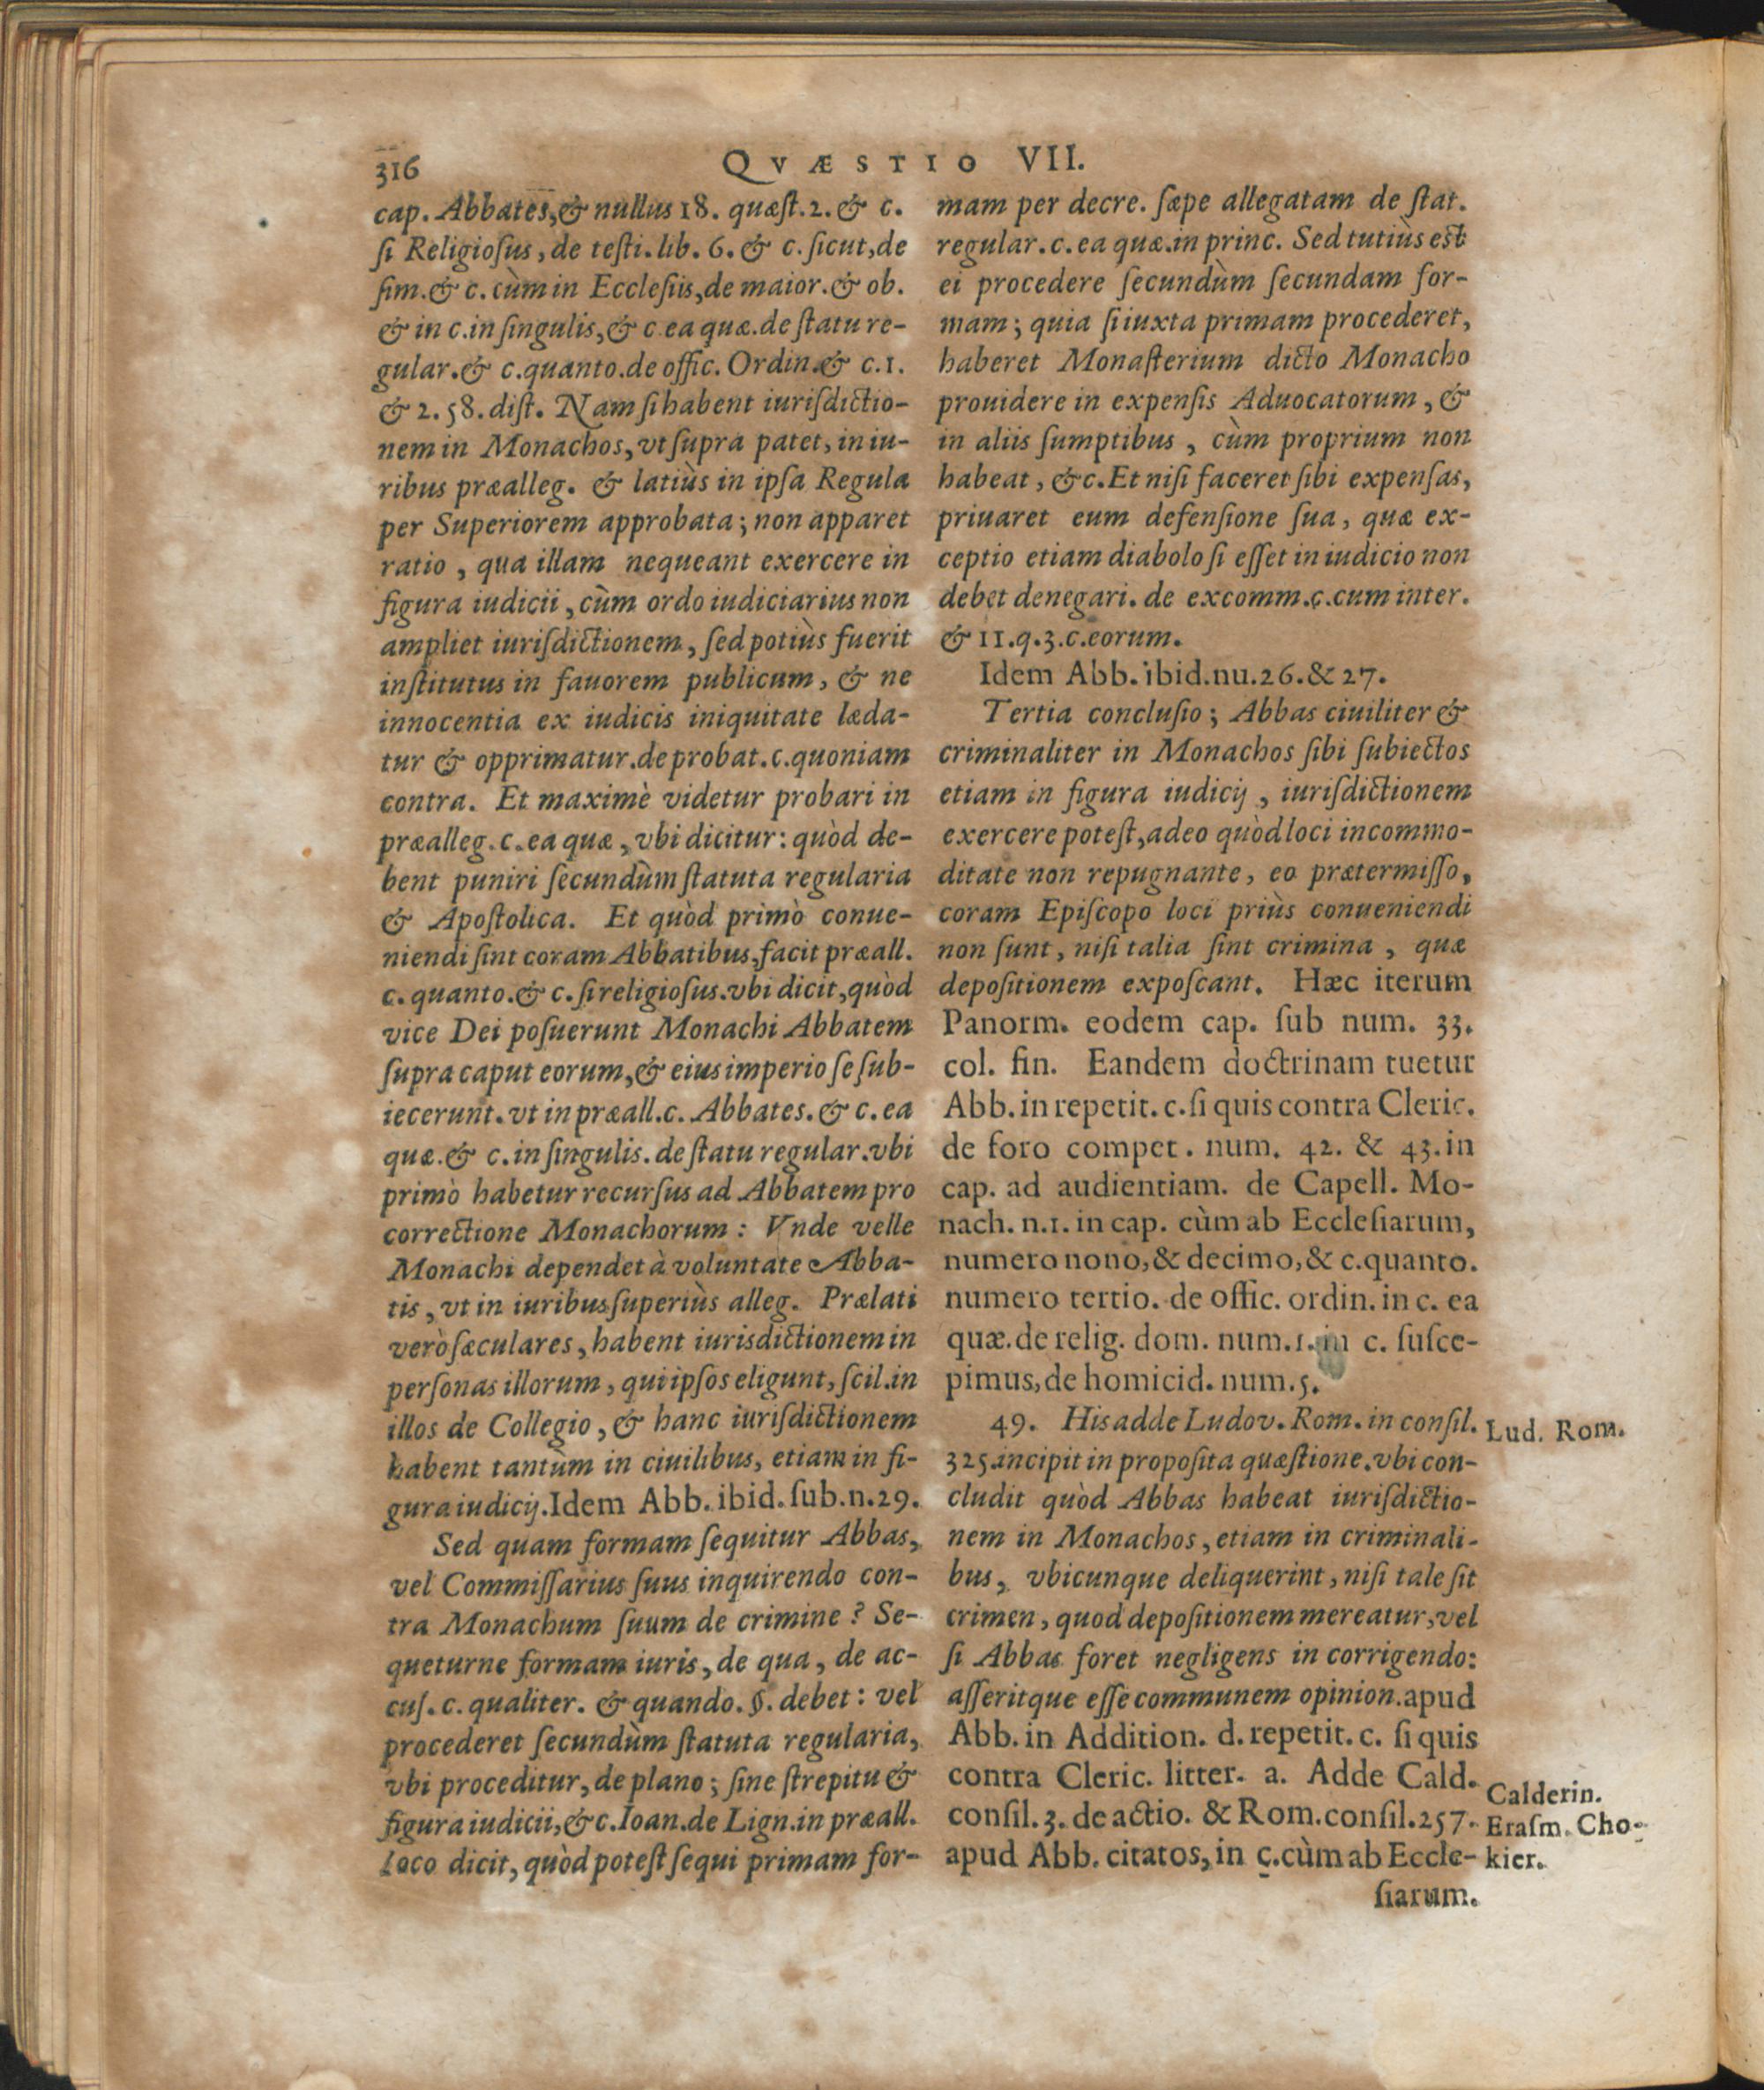 316
QVÆSTIO VII.
cap. Abbates, & nullus 18. quæſt. 2. & c.
ſi Religioſus, de teſti. lib. 6. & c. ſicut, de
ſim. & c. cùm in Eccleſiis, de maior. & ob.
& in c. in ſingulis, & c. ea quæ. de ſtatu re-
gular. & c. quanto. de offic. Ordin. & c. 1.
& 2. 58. diſt. Nam ſi habent iuriſdictio-
nem in Monachos, vt ſupra patet, in iu-
ribus præalleg. & latiùs in ipſa Regula
per Superiorem approbata; non apparet
ratio, qua illam nequeant exercere in
figura iudicii, cùm ordo iudiciarius non
ampliet iuriſdictionem, ſed potiùs fuerit
inſtitutus in fauorem publicum, & ne
innocentia ex iudicis iniquitate læda-
tur & opprimatur. de probat. c. quoniam
contra. Et maximè videtur probari in
præalleg. c. ea quæ, vbi dicitur: quòd de-
bent puniri ſecundùm ſtatuta regularia
& Apoſtolica. Et quòd primò conue-
niendi ſint coram Abbatibus, facit præall.
c. quanto. & c. ſi religioſus. vbi dicit, quòd
vice Dei poſuerunt Monachi Abbatem
ſupra caput eorum, & eius imperio ſe ſub-
iecerunt. vt in præall. c. Abbates. & c. ea
quæ. & c. in ſingulis. de ſtatu regular. vbi
primò habetur recurſus ad Abbatem pro
correctione Monachorum: Vnde velle
Monachi dependet à voluntate Abba-
tis, vt in iuribus ſuperiùs alleg. Prælati
verò ſæculares, habent iurisdictionem in
perſonas illorum, qui ipſos eligunt, ſcil. in
illos de Collegio, & hanc iuriſdictionem
habent tantùm in ciuilibus, etiam in fi-
gura iudicij. Idem Abb. ibid. ſub. n. 29.
Sed quam formam ſequitur Abbas,
vel Commiſſarius ſuus inquirendo con-
tra Monachum ſuum de crimine? Se-
queturne formam iuris, de qua, de ac-
cuſ. c. qualiter. & quando. §. debet: vel
procederet ſecundùm ſtatuta regularia,
vbi proceditur, de plano; ſine ſtrepitu &
figura iudicii, &c. Ioan. de Lign. in præall.
loco dicit, quòd poteſt ſequi primam for-
mam per decre. ſæpe allegatam de ſtat.
regular. c. ea quæ. in princ. Sed tutiùs eſt
ei procedere ſecundùm ſecundam for-
mam; quia ſi iuxta primam procederet,
haberet Monaſterium dicto Monacho
prouidere in expenſis Aduocatorum, &
in aliis ſumptibus, cùm proprium non
habeat, &c. Et niſi faceret ſibi expenſas,
priuaret eum defenſione ſua, quæ ex-
ceptio etiam diabolo ſi eſſet in iudicio non
debet denegari. de excomm. c. cum inter.
& 11. q. 3. c. eorum.
Idem Abb. ibid. nu. 26. & 27.
Tertia concluſio; Abbas ciuiliter &
criminaliter in Monachos ſibi ſubiectos
etiam in figura iudicij, iuriſdictionem
exercere poteſt, adeo quòd loci incommo-
ditate non repugnante, eo prætermiſſo,
coram Epiſcopo loci priùs conueniendi
non ſunt, niſi talia ſint crimina, quæ
depoſitionem expoſcant. Hæc iterum
Panorm. eodem cap. ſub num. 33.
col. fin. Eandem doctrinam tuetur
Abb. in repetit. c. ſi quis contra Cleric.
de foro compet. num. 42. & 43. in
cap. ad audientiam. de Capell. Mo-
nach. n. 1. in cap. cùm ab Eccleſiarum,
numero nono, & decimo, & c. quanto.
numero tertio. de offic. ordin. in c. ea
quæ. de relig. dom. num. 1. in c. ſuſce-
pimus, de homicid. num. 5.
49. His adde Ludov. Rom. in conſil.
325. incipit in propoſita quæſtione. vbi con-
cludit quòd Abbas habeat iuriſdictio-
nem in Monachos, etiam in criminali-
bus, vbicunque deliquerint, niſi tale ſit
crimen, quod depoſitionem mereatur, vel
ſi Abbas foret negligens in corrigendo:
aſſeritque eſſe communem opinion. apud
Abb. in Addition. d. repetit. c. ſi quis
contra Cleric. litter. a. Adde Cald.
conſil. 3. de actio. & Rom. conſil. 257.
apud Abb. citatos, in c. cùm ab Eccle-
ſiarum.
Lud. Rom.
Calderin.
Eraſm. Cho-
kier.